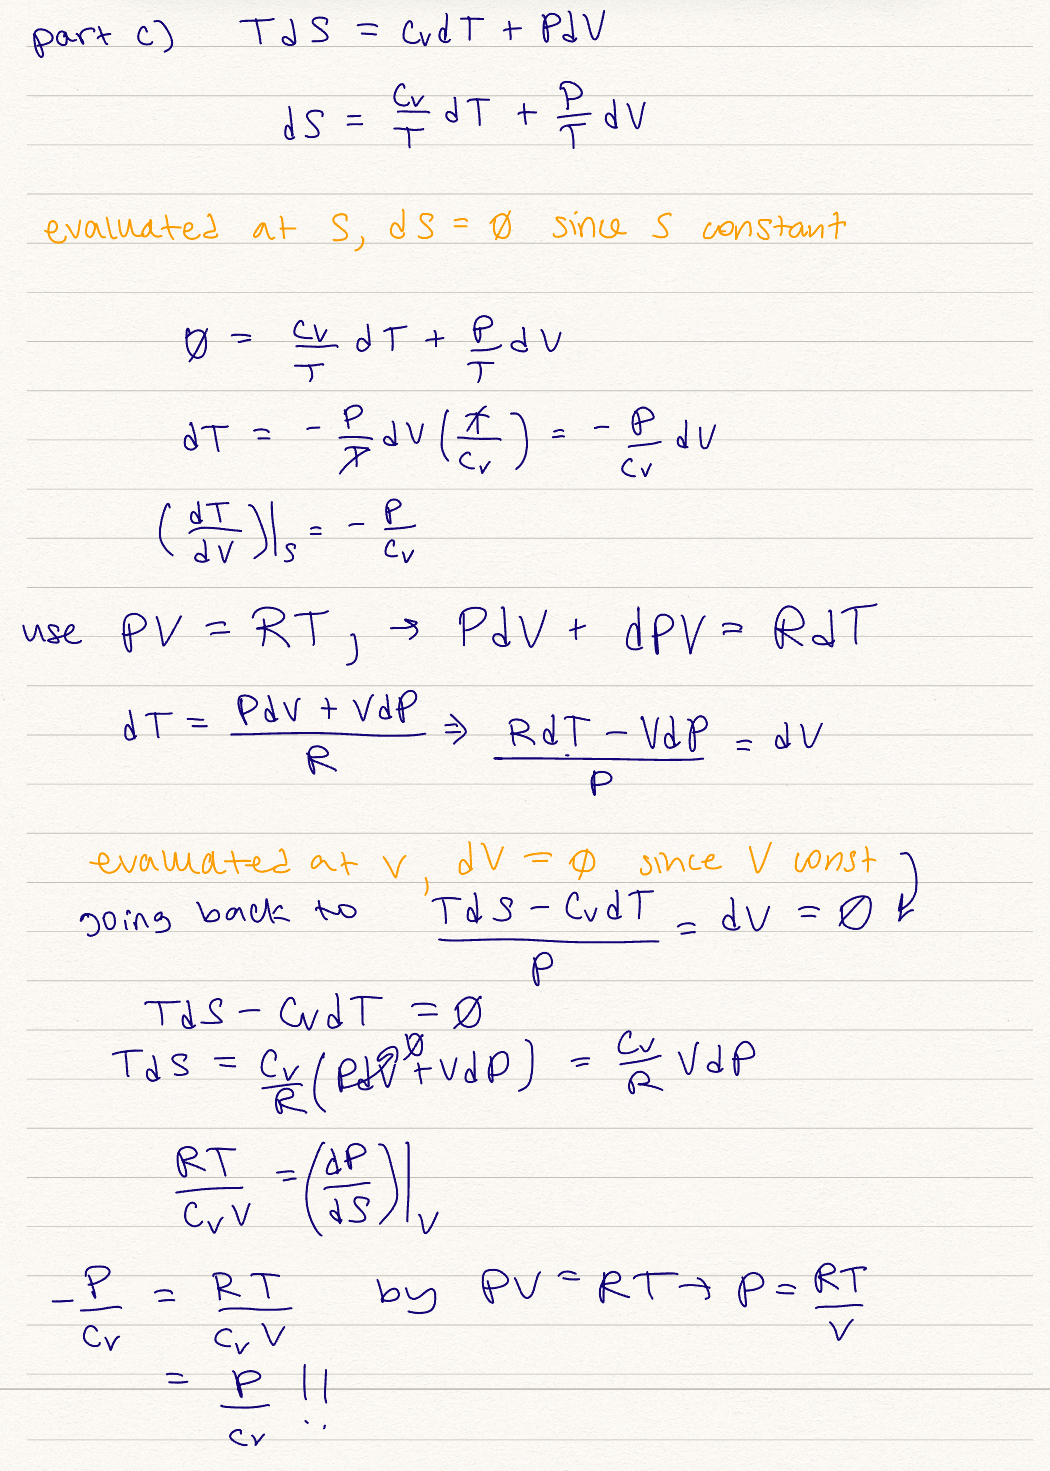 part c) TdS = CvdT + PdV
dS = Cv/T dT + P/T dV
evaluated at S, dS = ∅ since S constant
∅ = Cv/T dT + P/T dV
dT = - P/T dV (T/Cv) = - P/Cv dV
(dT/dV)|s = - P/Cv
use PV = RT, → PdV + dPV = RdT
dT = PdV + VdP / R ⇒ RdT - VdP / P = dV
evaluated at V, dV = ∅ since V const
going back to TdS - CvdT / P = dV = ∅
TdS - CvdT = ∅
TdS = Cv/R (PdV ∅ + VdP) = Cv/R VdP
RT/CvV = (dP/dS)|V
-P/Cv = RT/CvV by PV = RT → P = RT/V
= P/Cv !!